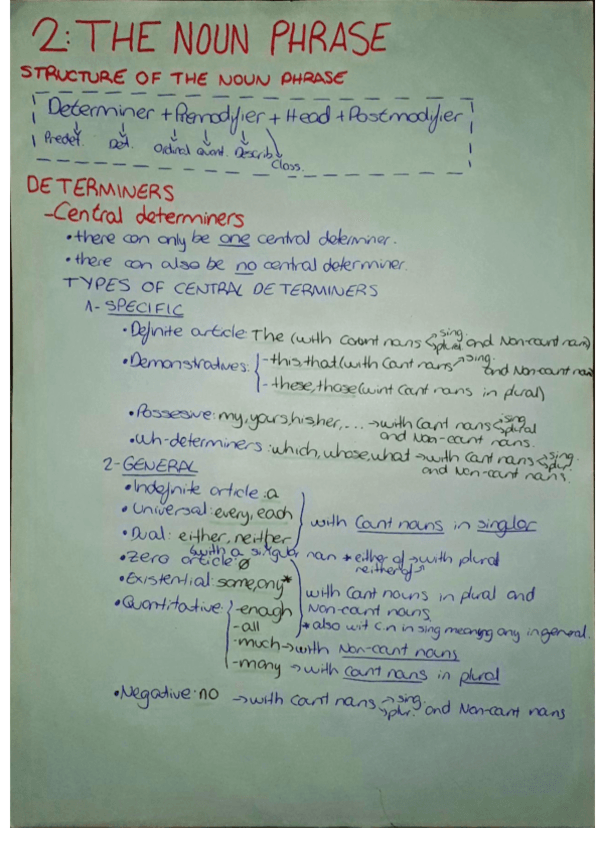 2: THE NOUN PHRASE
STRUCTURE OF THE NOUN PHRASE
Determiner + Premodifier + Head + Postmodifier
Predet. Det. Ordinal Quant. Describ.
Class.
DETERMINERS
- Central determiners
• there can only be one central determiner.
• there can also be no central determiner.
TYPES OF CENTRAL DETERMINERS
1- SPECIFIC
• Definite article: The (with count nouns → sing. → plural and Non-count noun)
• Demonstratives: - this, that (with Count nouns → sing. and Non-count noun
- these, those (wint Count nouns in plural)
• Possesive: my, yours, his, her, ... → with Count nouns → sing → plural
and Non-count nouns.
• Wh-determiners: which, whose, what → with Count nouns → sing → plur.
and Non-count nouns.
2- GENERAL
• Indefinite article: a
• Universal: every, each
with Count nouns in singlar
• Dual: either, neither
(with a singular noun * either of → with plural
neither of
• Zero article: Ø
• Existential: some, any*
with Count nouns in plural and
• Quantitative: - enough
Non-count nouns.
- all
* also wit C.n in sing meaning any in general.
- much → with Non-count nouns
- many → with count nouns in plural
• Negative: no → with count nouns → sing. → plur. and Non-count nouns